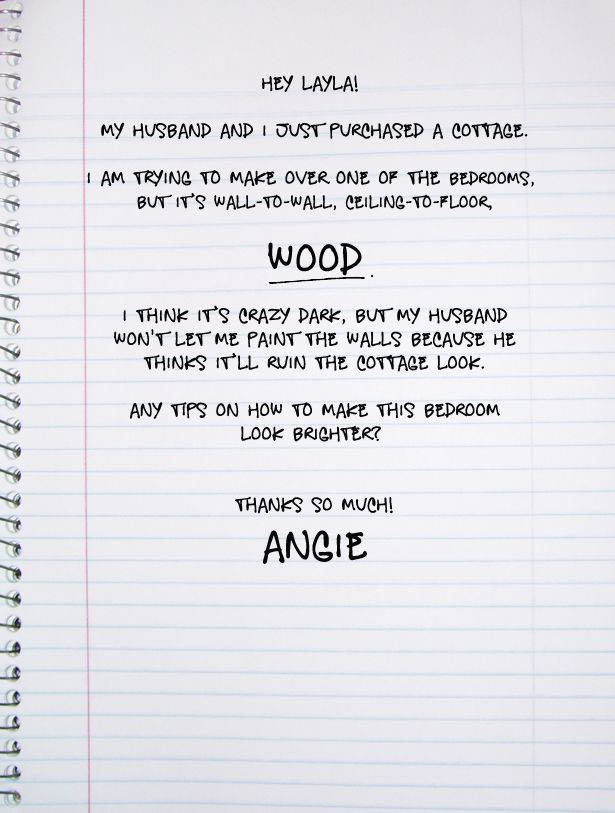 HEY LAYLA!
MY HUSBAND AND I JUST PURCHASED A COTTAGE.
I AM TRYING TO MAKE OVER ONE OF THE BEDROOMS,
BUT IT'S WALL-TO-WALL, CEILING-TO-FLOOR,
WOOD.
I THINK IT'S CRAZY DARK, BUT MY HUSBAND
WON'T LET ME PAINT THE WALLS BECAUSE HE
THINKS IT'LL RUIN THE COTTAGE LOOK.
ANY TIPS ON HOW TO MAKE THIS BEDROOM
LOOK BRIGHTER?
THANKS SO MUCH!
ANGIE